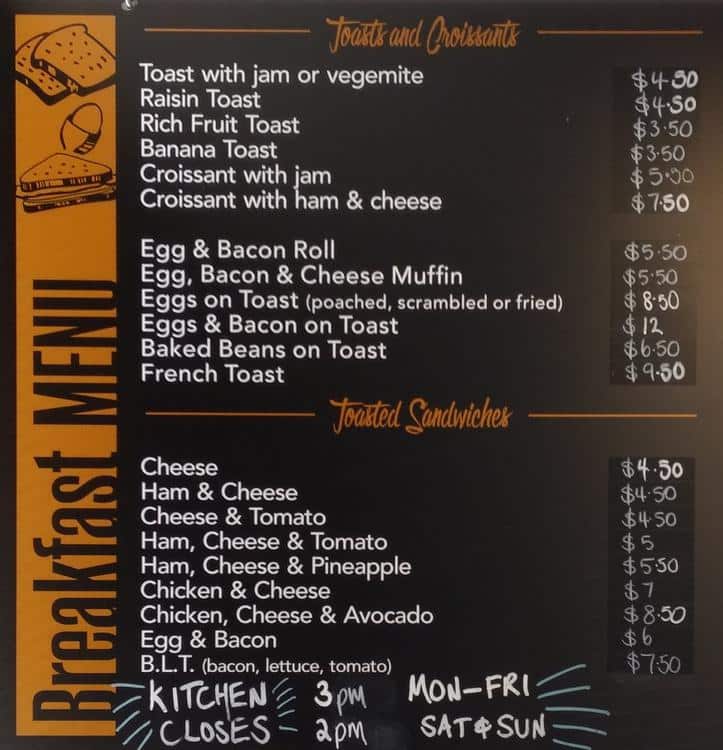 Breakfast MENU
Toasts and Croissants
Toast with jam or vegemite $4.50
Raisin Toast $4.50
Rich Fruit Toast $3.50
Banana Toast $3.50
Croissant with jam $5.00
Croissant with ham & cheese $7.50
Egg & Bacon Roll $5.50
Egg, Bacon & Cheese Muffin $5.50
Eggs on Toast (poached, scrambled or fried) $8.50
Eggs & Bacon on Toast $12
Baked Beans on Toast $6.50
French Toast $9.50
Toasted Sandwiches
Cheese $4.50
Ham & Cheese $4.50
Cheese & Tomato $4.50
Ham, Cheese & Tomato $5
Ham, Cheese & Pineapple $5.50
Chicken & Cheese $7
Chicken, Cheese & Avocado $8.50
Egg & Bacon $6
B.L.T. (bacon, lettuce, tomato) $7.50
KITCHEN 3pm MON-FRI
CLOSES 2pm SAT & SUN